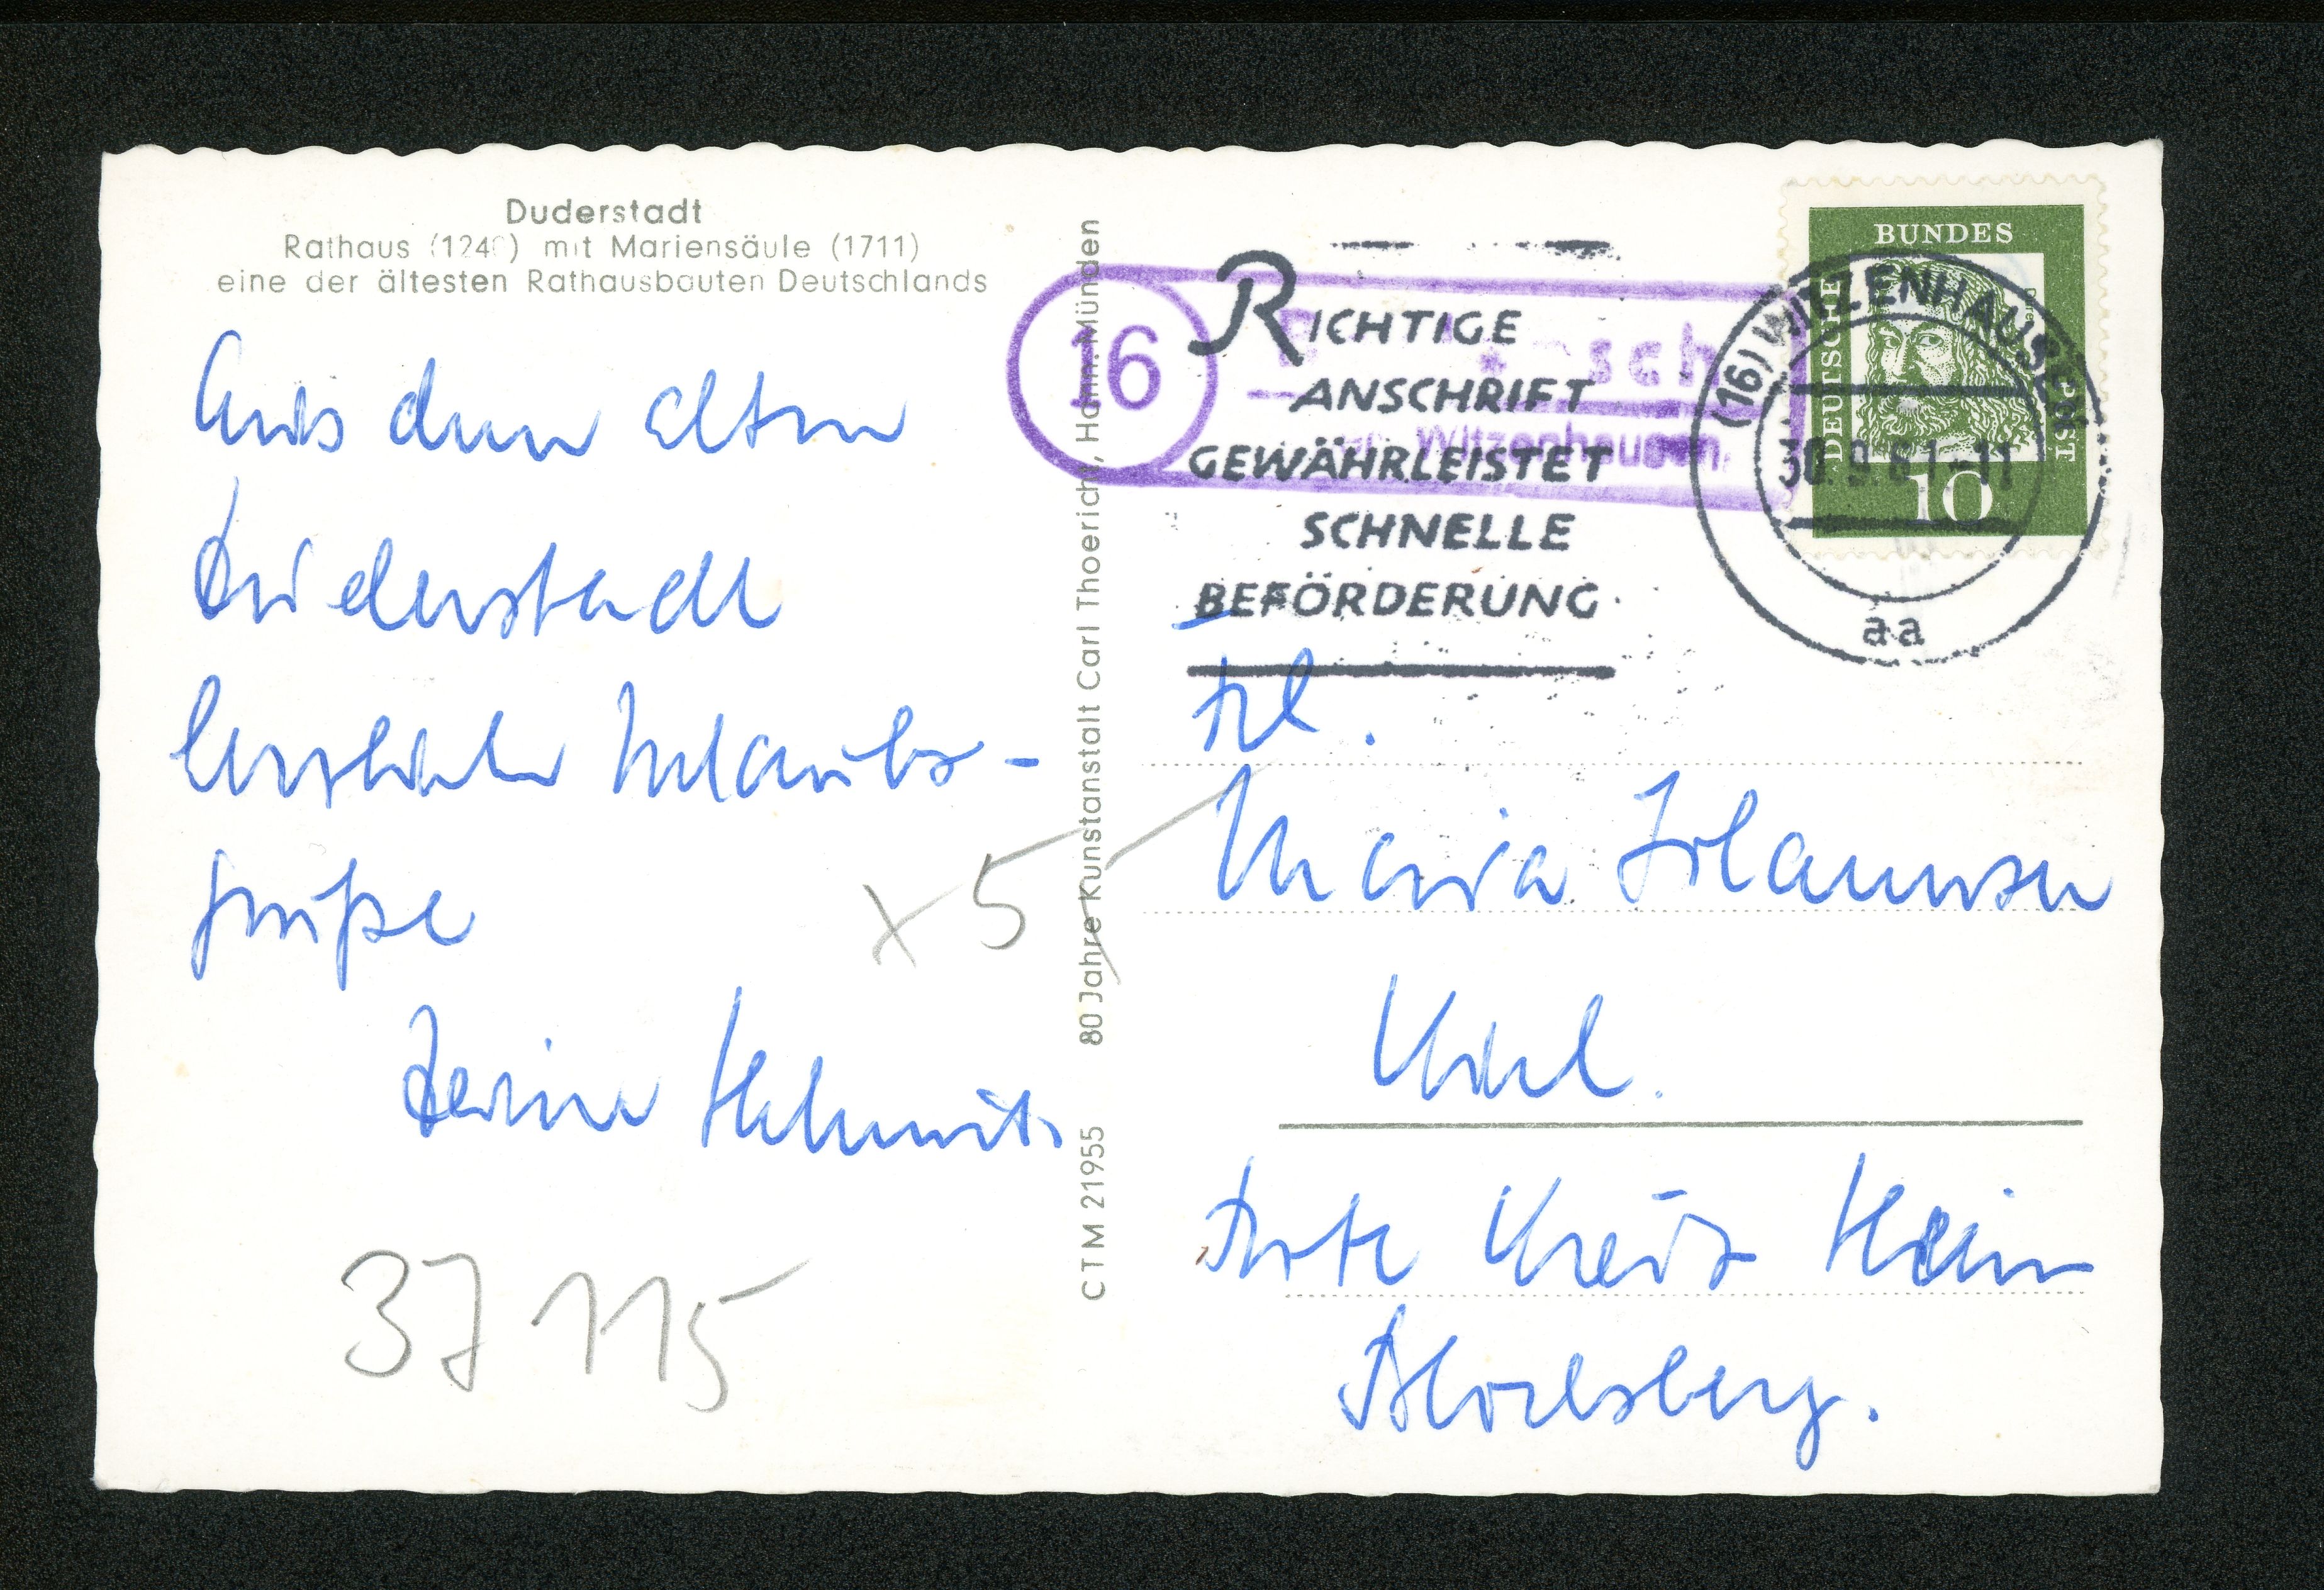 Duderstadt
Rathaus (124 ) mit Mariensäule (1711)
eine der ältesten Rathausbauten Deutschlands
Aus dem alten
Duderstadt
herzliche Urlaubs-
grüße
Deine
37115
x5
CTM 21955 80 Jahre Kunstanstalt Carl Thoericht, Hann. Münden
16
Witzenhausen
RICHTIGE
ANSCHRIFT
GEWÄHRLEISTET
SCHNELLE
BEFÖRDERUNG
DEUTSCHE BUNDESPOST
10
(16) WITZENHAUSEN
30.9.61-11
aa
Frl.
Maria
Post Kreis Stein